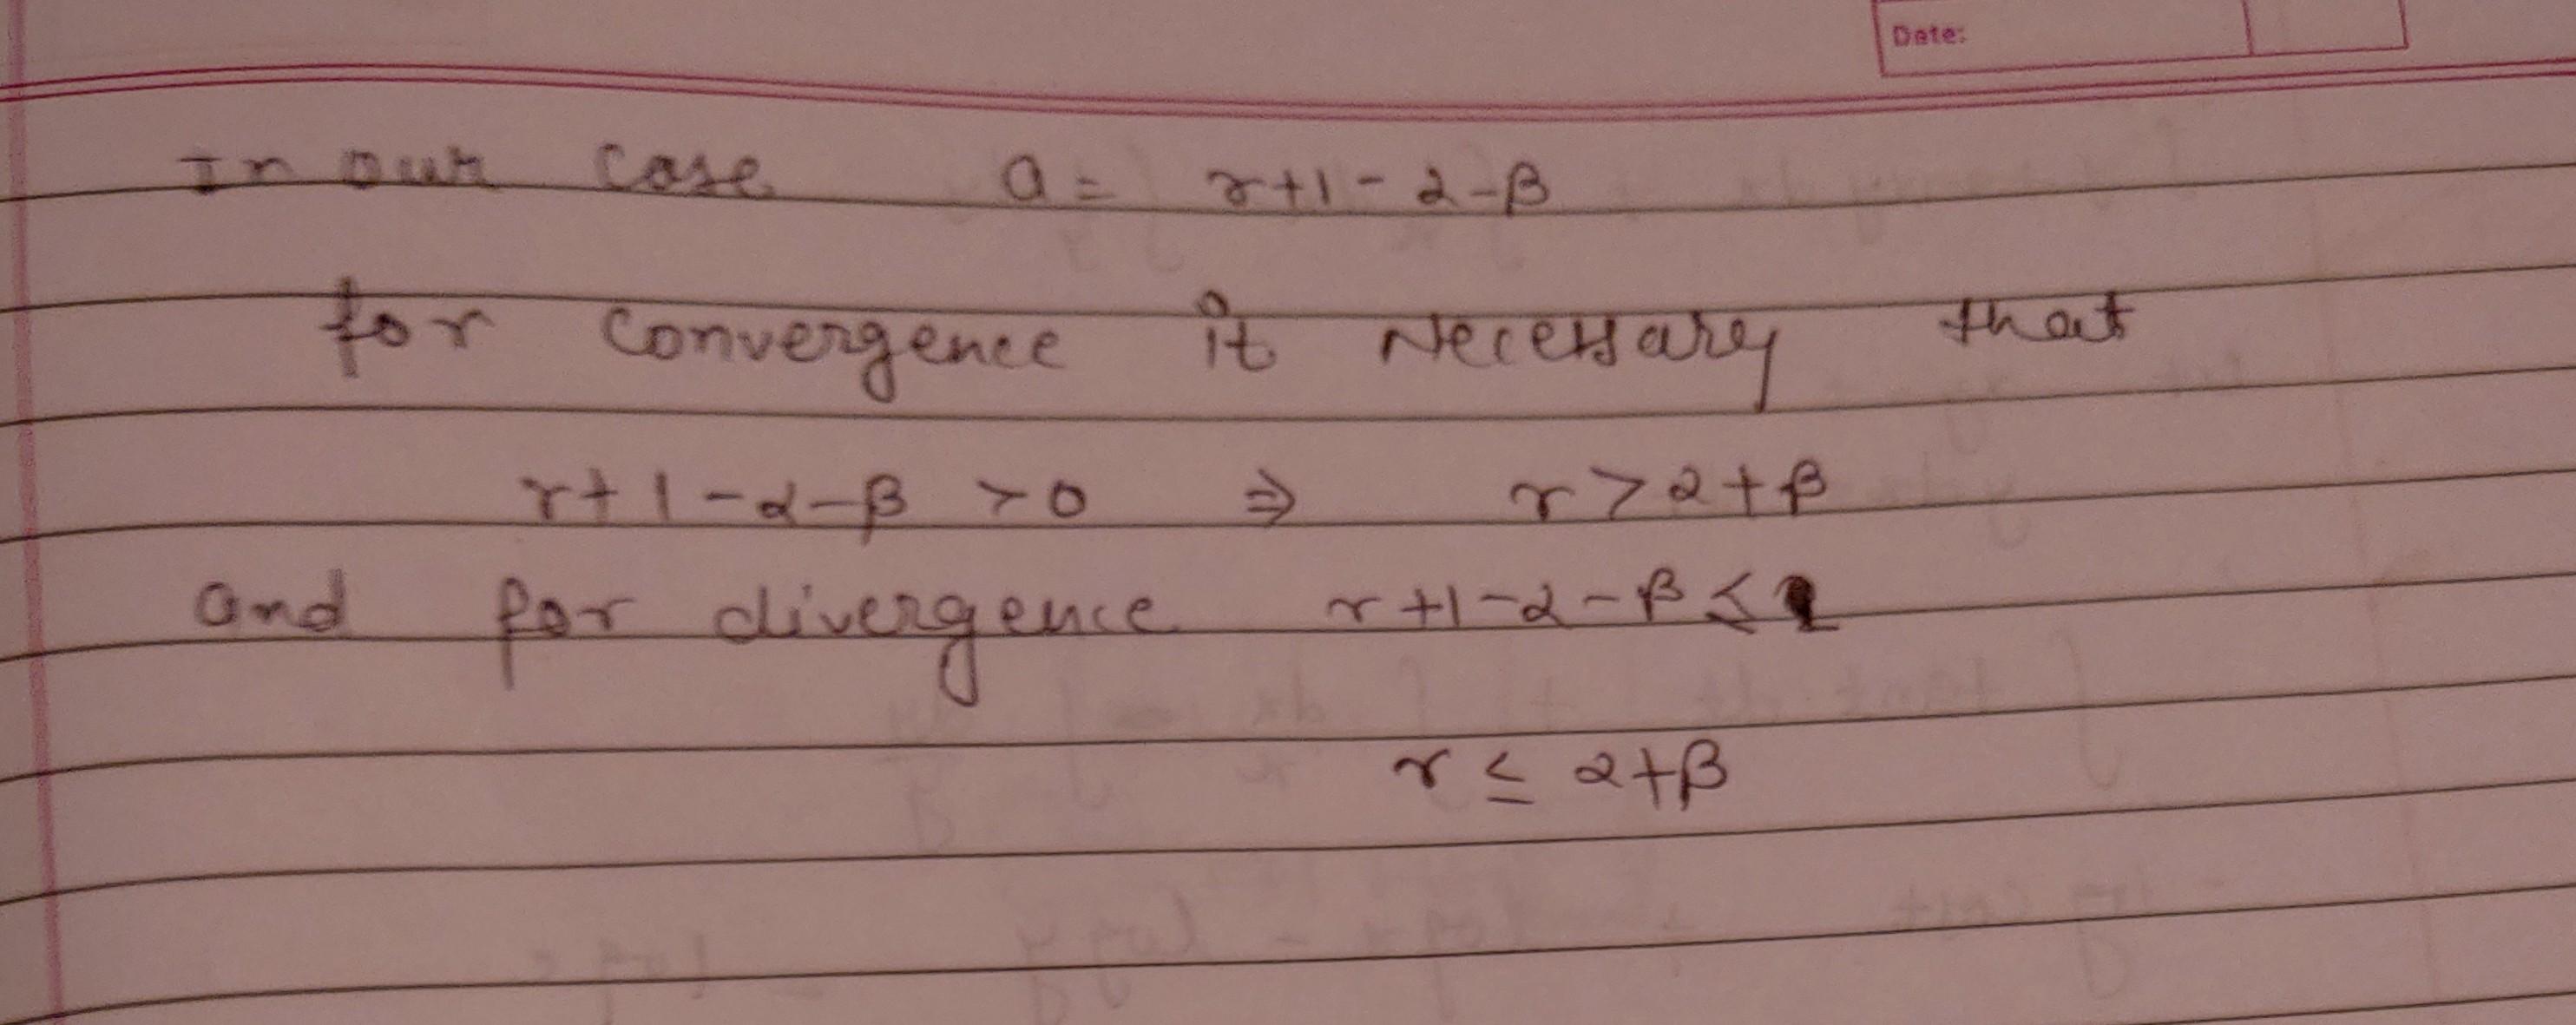 Date:
In our case a = r+1-α-β
for convergence it Necessary that
r+1-α-β >0 ⇒ r>α+β
and for divergence r+1-α-β ≤ 1
r ≤ α+β